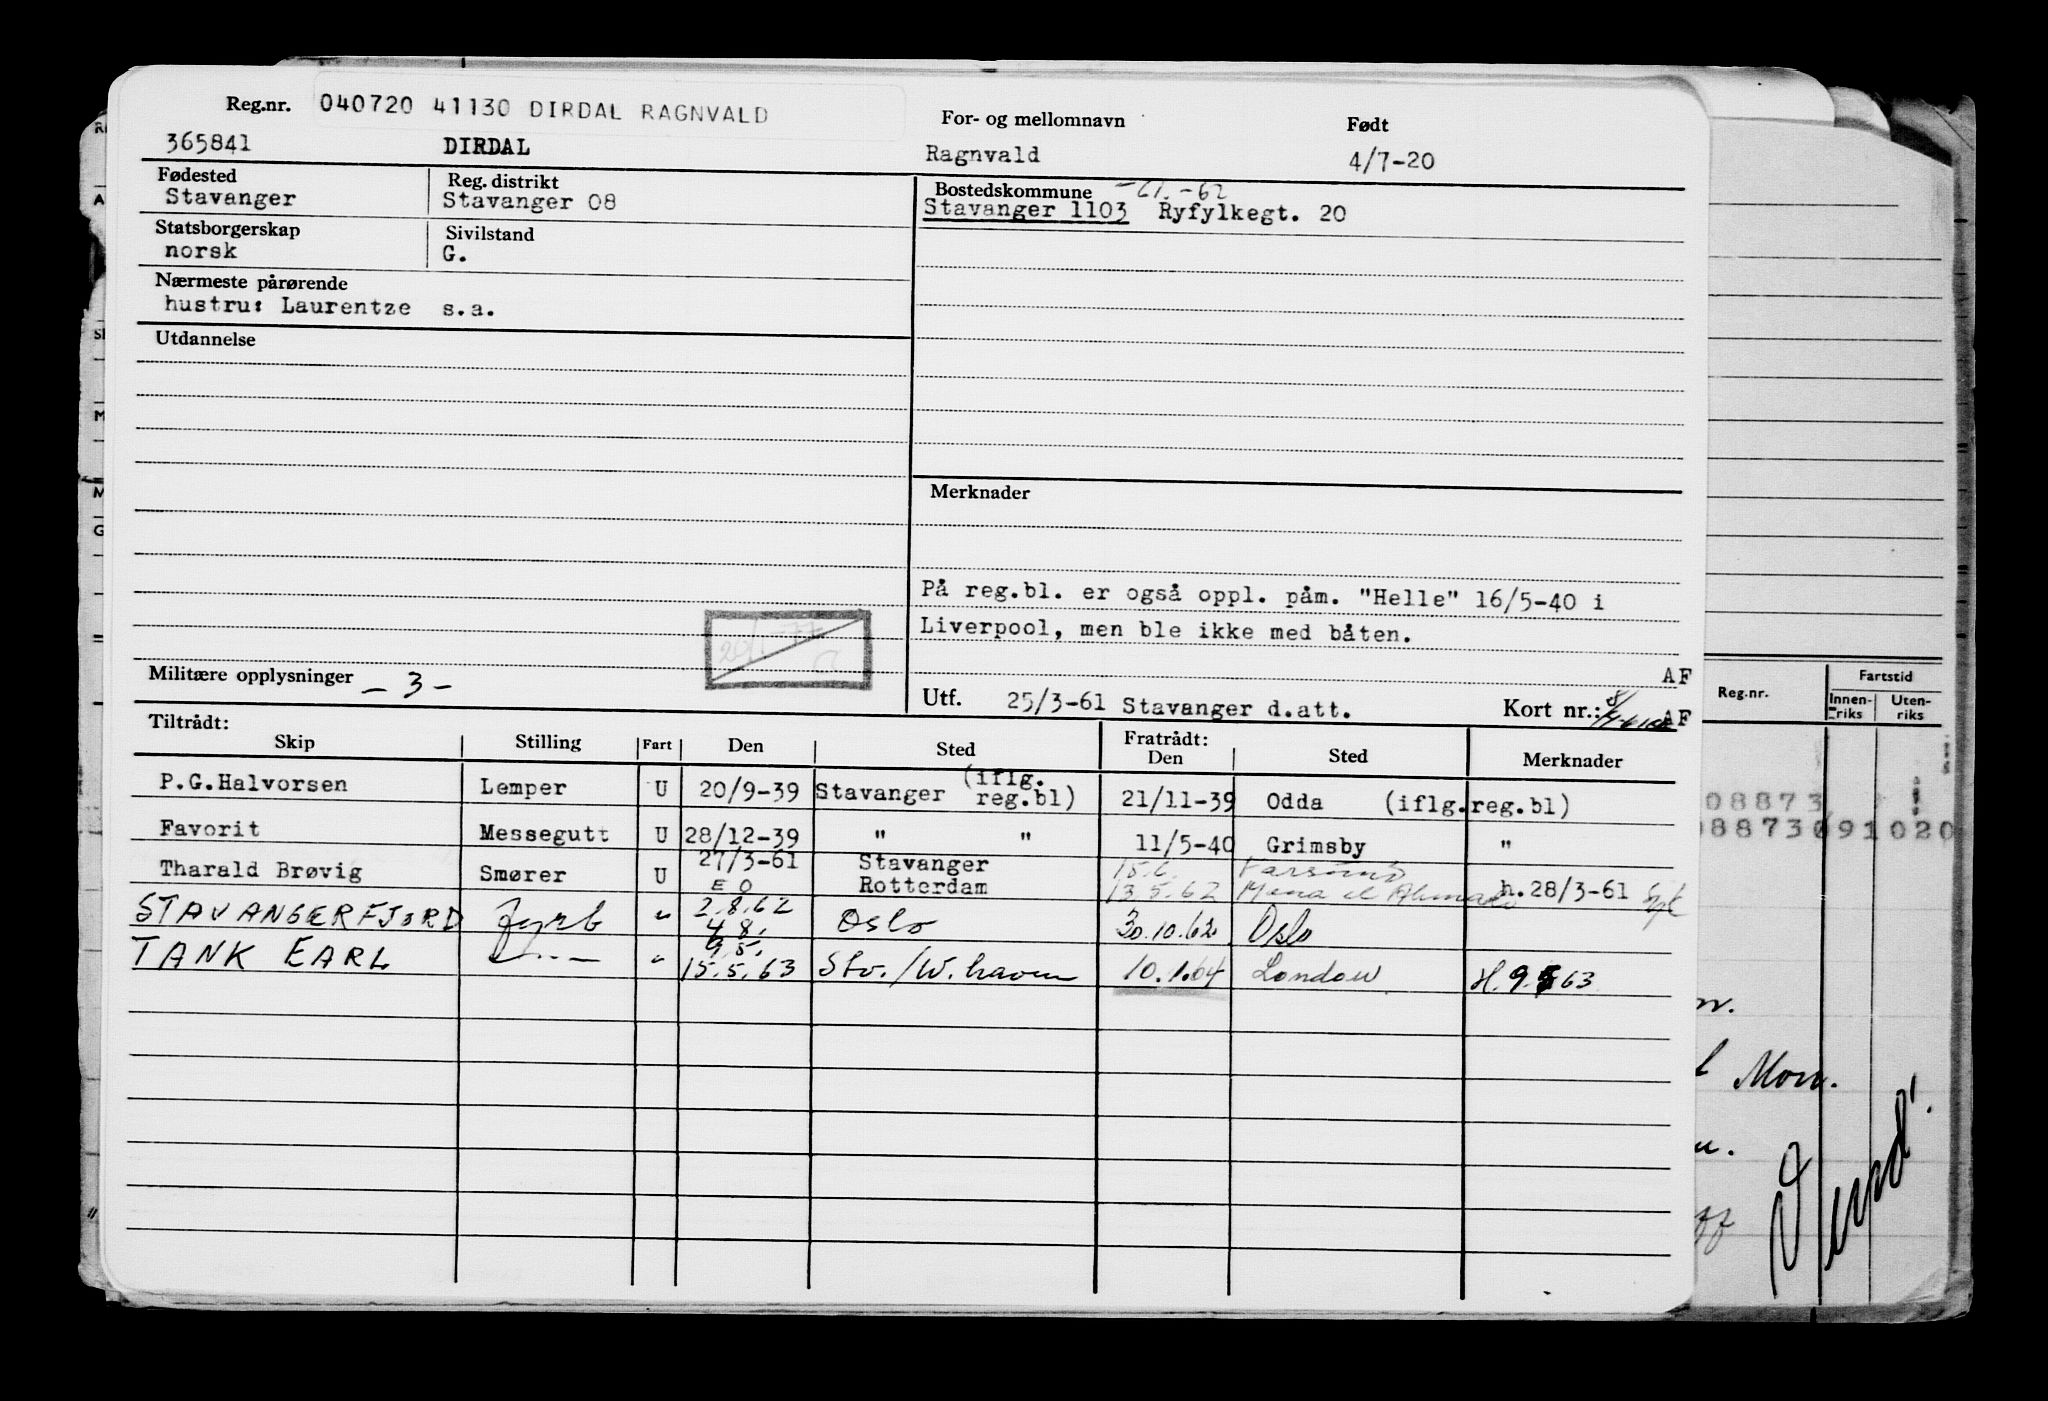 Reg.nr. 040720 41130 DIRDAL RAGNVALD
For- og mellomnavn Født
365841 DIRDAL Ragnvald 4/7-20
Fødested Reg. distrikt Bostedskommune -61.-62
Stavanger Stavanger 08 Stavanger 1103 Ryfylkegt. 20
Statsborgerskap Sivilstand
norsk G.
Nærmeste pårørende
hustru: Laurentze s.a.
Utdannelse
Merknader
På reg.bl. er også oppl. påm. "Helle" 16/5-40 i
Liverpool, men ble ikke med båten.
AF
Militære opplysninger - 3 -
Utf. 25/3-61 Stavanger d.att. Kort nr.: AF
Tiltrådt: Fratrådt:
Skip Stilling Fart Den Sted Den Sted Merknader
P.G.Halvorsen Lemper U 20/9-39 Stavanger (iflg. reg.bl) 21/11-39 Odda (iflg.reg.bl)
Favorit Messegutt U 28/12-39 " " 11/5-40 Grimsby "
Tharald Brøvig Smører U 27/3-61 Stavanger 15.6.
E O Rotterdam 13.5.62 Mena el h.28/3-61
STAVANGERFJORD Fyrb " 2.8.62 Oslo 30.10.62 Oslo
4.8.
TANK EARL —"— " 9.5. Stv./W.haven 10.1.64 London H. 9 5 63
15.5.63
Reg.nr. Fartstid
Innen-riks Uten-riks
08873
88730 91020
Mon.